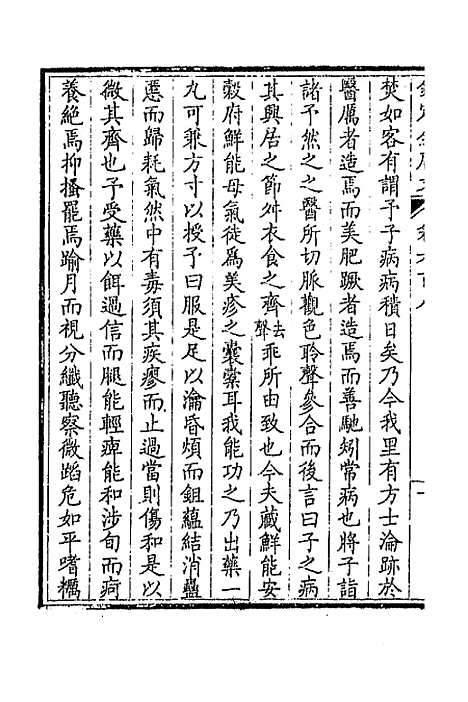 焚如客有謂予子病病積日矣乃今我里有方士淪跡於
醫厲者造焉而美肥蹶者造焉而善馳矧常病也將子詣
諸予然之之醫所切脈觀色聆聲參合而後言曰子之病
其興居之節舛衣食之齊去聲乖所由致也今夫藏鮮能安
穀府鮮能母氣徒為美疹之囊橐耳我能功之乃出藥一
丸可兼方寸以授予曰服是足以瀹昏煩而鉏蘊結消蠱
慝而歸耗氣然中有毒須其疾瘳而止過當則傷和是以
微其齊也予受藥以餌過信而腿能輕痺能和涉旬而痾
養絕焉抑搔罷焉踰月而視分纖聽察微蹈危如平嗜糲